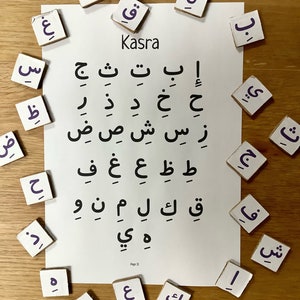 Kasra
إِ بِ تِ ثِ جِ
حِ خِ دِ ذِ رِ
زِ سِ شِ صِ ضِ
طِ ظِ عِ غِ فِ
قِ كِ لِ مِ نِ وِ
هِ يِ
غِ
قِ
بِ
سِ
ظِ
ضِ
حِ
ثِ
جِ
فِ
شِ
إِ